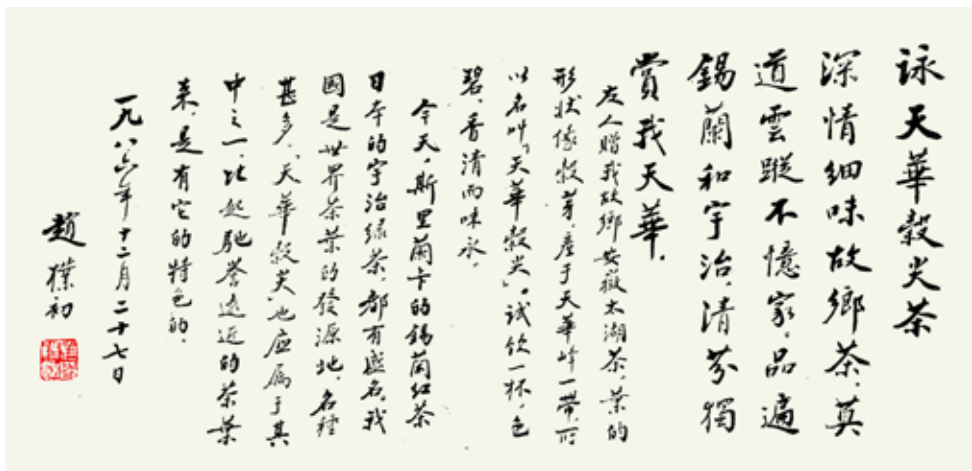 詠天華穀尖茶
深情細味故鄉茶,莫
道雲蹤不憶家。品遍
錫蘭和宇治,清芬獨
賞我天華。
友人贈我故鄉安徽太湖茶,葉的
形狀像穀芽,產于天華峰一帶,所
以名叫「天華穀尖」。試飲一杯,色
碧、香清而味永。
今天,斯里蘭卡的錫蘭紅茶
日本的宇治綠茶,都有盛名,我
國是世界茶葉的發源地,名種
甚多,「天華穀尖」也應屬于其
中之一,比起馳譽遠近的茶葉
來,是有它的特色的。
一九八六年十二月二十七日
趙樸初